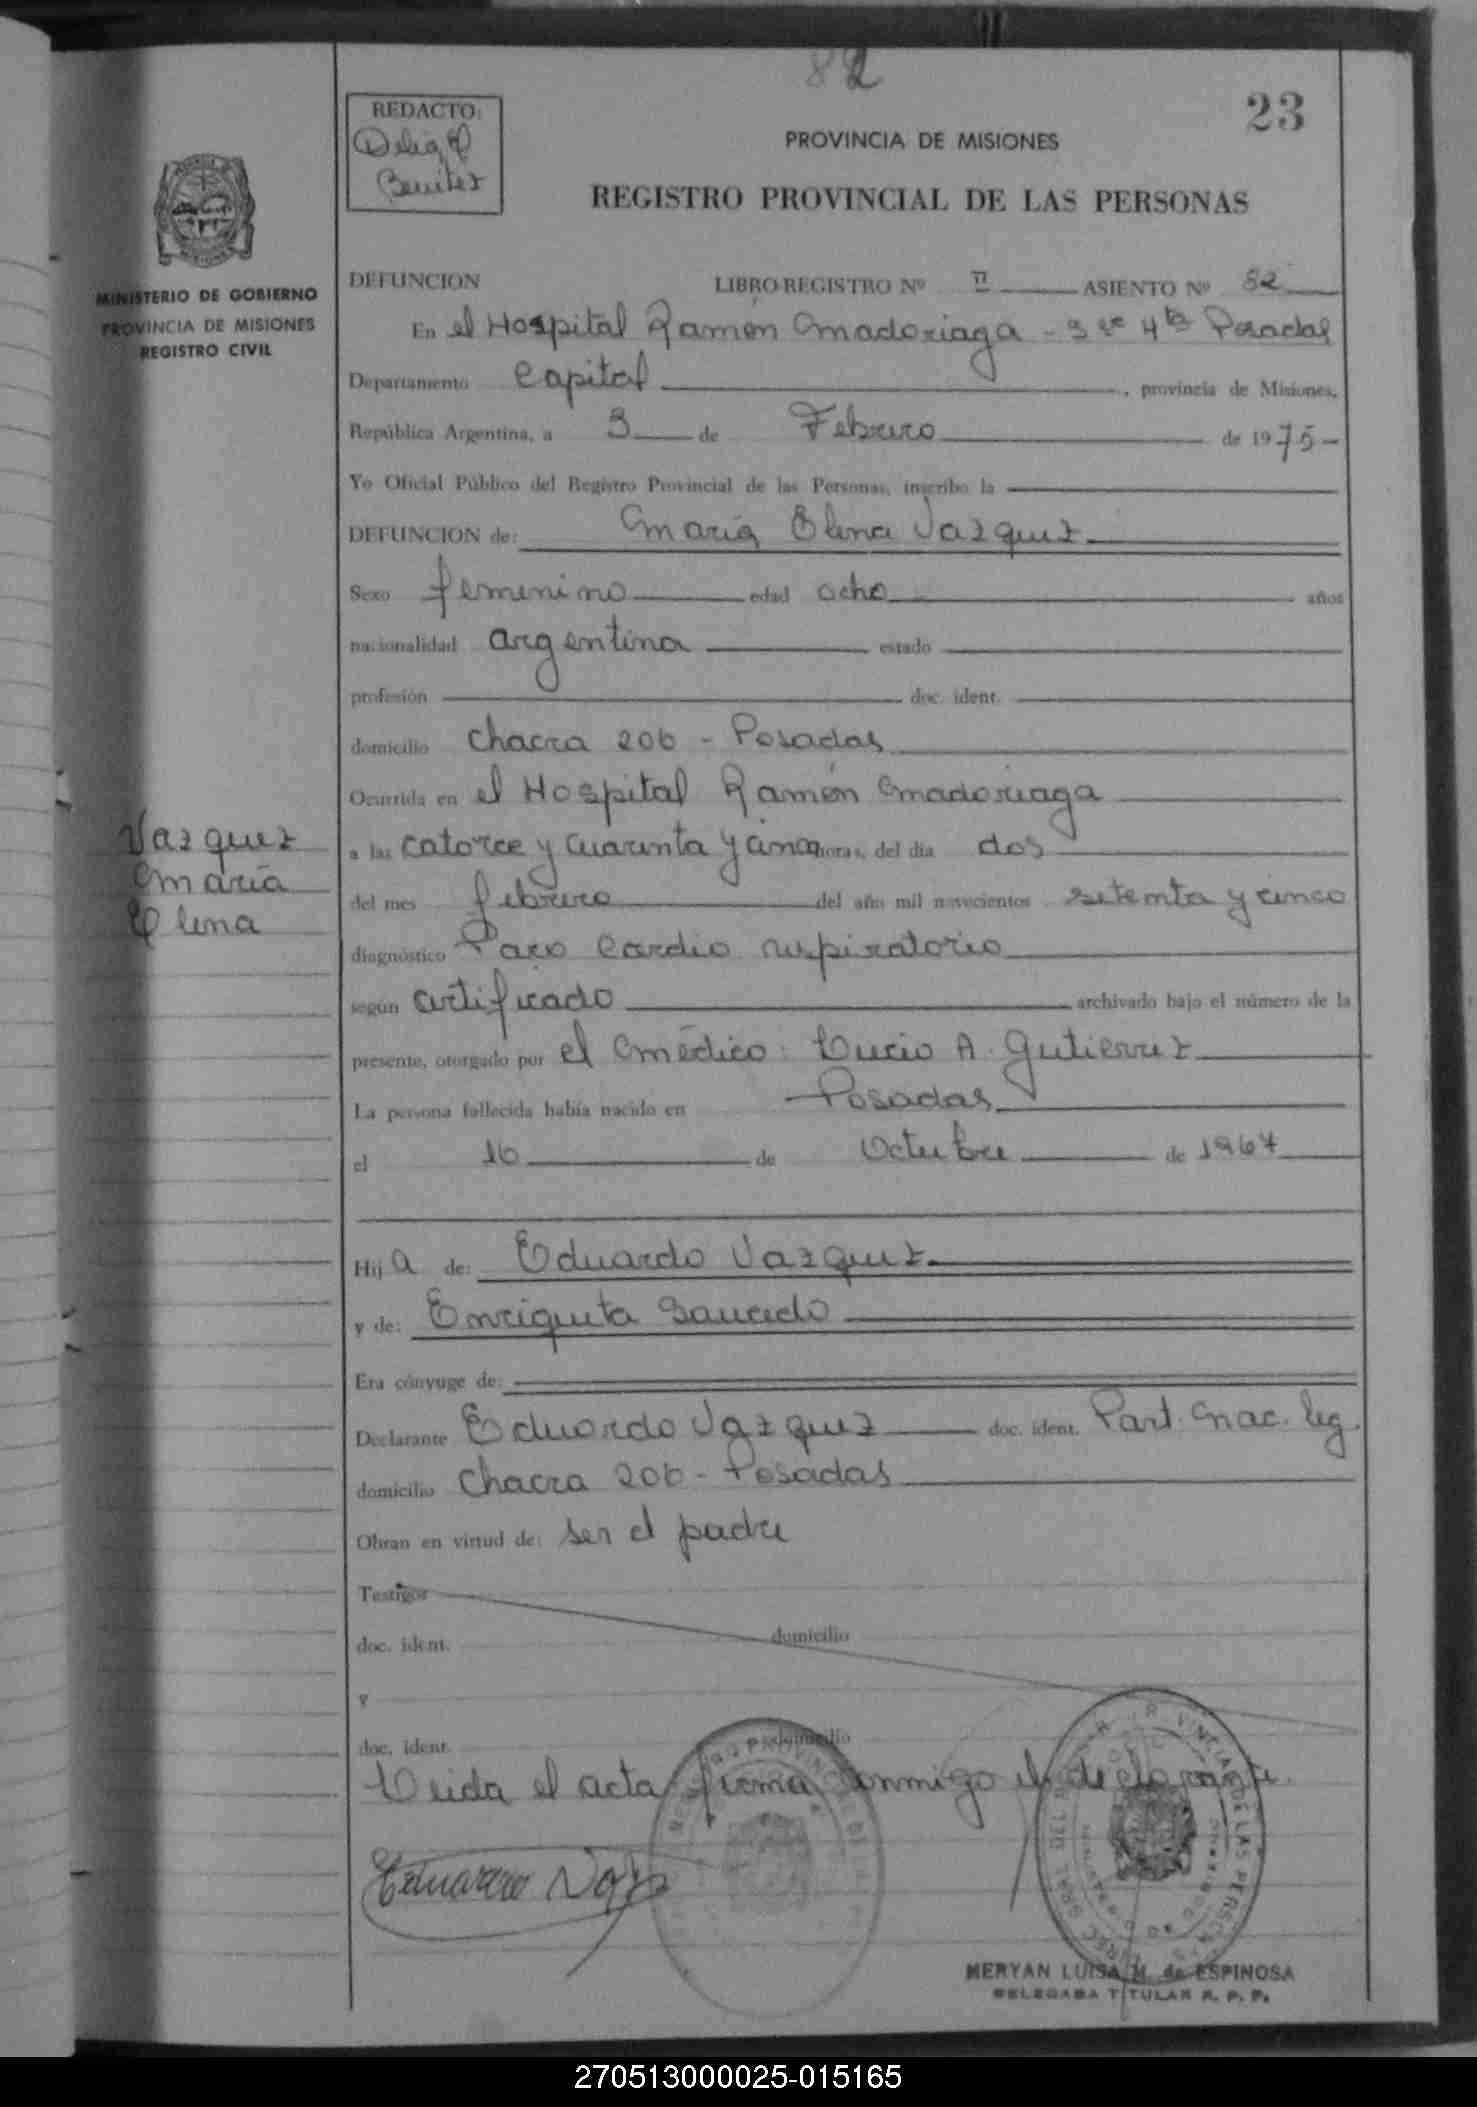 82
23
REDACTO:
Delia E
Benitez
PROVINCIA DE MISIONES
REGISTRO PROVINCIAL DE LAS PERSONAS
MINISTERIO DE GOBIERNO
PROVINCIA DE MISIONES
REGISTRO CIVIL
DEFUNCION LIBRO-REGISTRO Nº II ASIENTO Nº 82
En el Hospital Ramón Madariaga - 3 4ta Posadas
Departamento Capital, provincia de Misiones,
República Argentina, a 3 de Febrero de 1975-
Yo Oficial Público del Registro Provincial de las Personas, inscribo la
DEFUNCION de: María Elena Vazquez
Sexo femenino edad ocho años
nacionalidad argentina estado
profesión doc. ident.
domicilio Chacra 206 - Posadas
Ocurrida en el Hospital Ramón Madariaga
a las catorce y cuarenta y cinco horas, del día dos
del mes febrero del año mil novecientos setenta y cinco
diagnóstico Paro Cardio respiratorio
según certificado archivado bajo el número de la
presente, otorgado por el Médico: Lucio A. Gutierrez
La persona fallecida había nacido en Posadas
el 16 de Octubre de 1967
Vazquez
María
Elena
Hija de: Eduardo Vazquez
y de: Enriqueta Saucedo
Era cónyuge de:
Declarante Eduardo Vazquez doc. ident. Part. Nac. leg.
domicilio Chacra 206 - Posadas
Obran en virtud de: ser el padre
Testigos
doc. ident. domicilio
y
doc. ident. domicilio
Leida el acta firma conmigo el declarante.
MERYAN LUISA M. de ESPINOSA
DELEGADA TITULAR R. P. P.
270513000025-015165